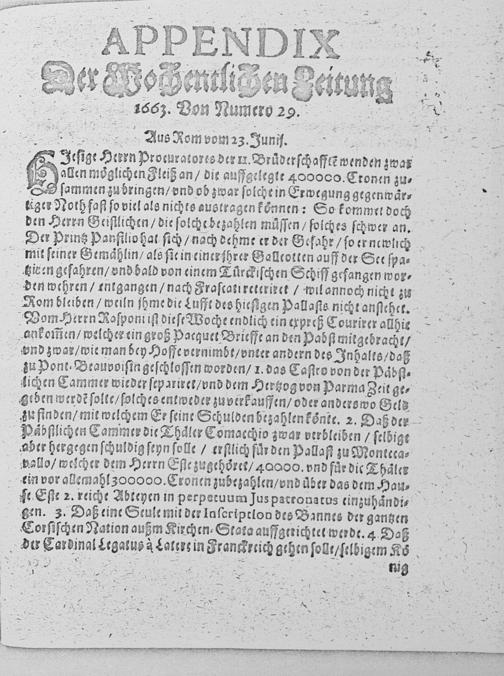 APPENDIX
Der Wochentlichen Zeitung
1663. Von Numero 29.
Aus Rom vom 23. Junij.
HJesige Herrn Procuratores der 11. Brüderschafftē wenden zwar
allen möglichen Fleiß an / die auffgelegte 400000. Cronen zu-
sammen zu bringen / vnd ob zwar solche in Erwegung gegenwär-
tiger Noth fast so viel als nichts austragen können : So kommet doch
den Herrn Geistlichen / die solche bezahlen müssen / solches schwer an.
Der Printz Panfilio hat sich / nach dehme er der Gefahr / so er newlich
mit seiner Gemählin / als sie in einer ihrer Galleotten auff der See spa-
tziren gefahren / vnd bald von einem Türckischen Schiff gefangen wor-
den wehren / entgangen / nach Frascati reteriret / wil annoch nicht zu
Rom bleiben / weiln jhme die Lufft des hiesigen Pallasts nicht anstehet.
Vom Herrn Rasponi ist diese Woche endlich ein expreß Courirer allhie
ankom̄en / welcher ein groß Pacquet Brieffe an den Pabst mitgebracht /
vnd zwar / wie man bey Hoffe vernimbt / vnter andern des Inhalts / daß
zu Pont-Beauvoisin geschlossen worden / 1. das Castro von der Päbst-
lichen Cammer wieder separiret / vnd dem Hertzog von Parma Zeit ge-
geben werdē solte / solches entweder zu verkauffen / oder anderswo Geld
zu finden / mit welchem Er seine Schulden bezahlen könte. 2. Daß der
Päbstlichen Cammer die Thäler Comacchio zwar verbleiben / selbige
aber hergegen schuldig seyn solle / erstlich für den Pallast zu Monteca-
vallo / welcher dem Herrn Este zugehöret / 40000. vnd für die Thäler
ein vor allemahl 300000. Cronen zubezahlen / vnd über das dem Hau-
se Este 2. reiche Abteyen in perpetuum Jus patronatus einzuhändi-
gen. 3. Daß eine Seule mit der Inscription des Bannes der gantzen
Corsischen Nation außm Kirchen-Stata auffgerichtet werde. 4 Daß
der Cardinal Legatus à Latere in Franckreich gehen solle / selbigem Kö
nig